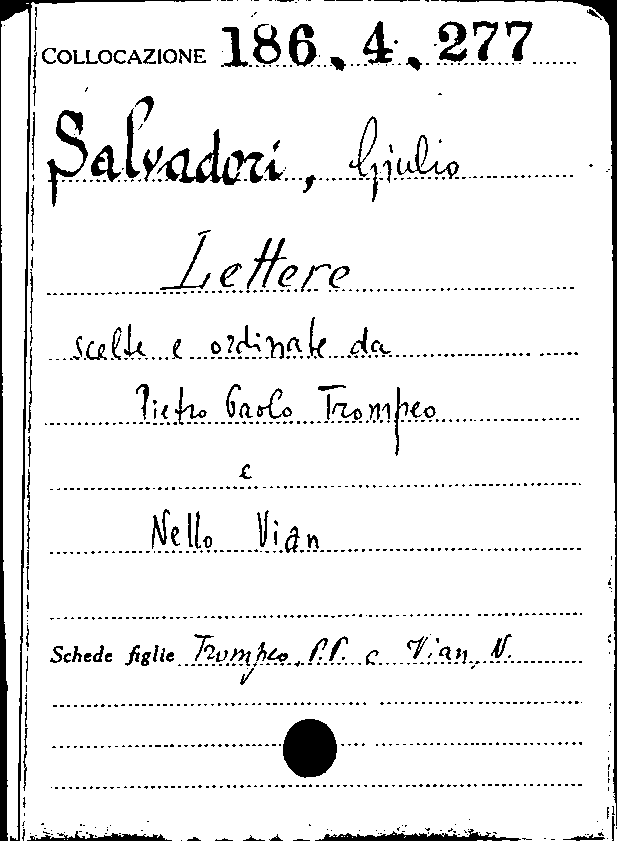 COLLOCAZIONE 186.4.277
Salvadori, Giulio
Lettere
scelte e ordinate da
Pietro Paolo Trompeo
e
Nello Vian
Schede figlie Trompeo, P.P. e Vian, N.